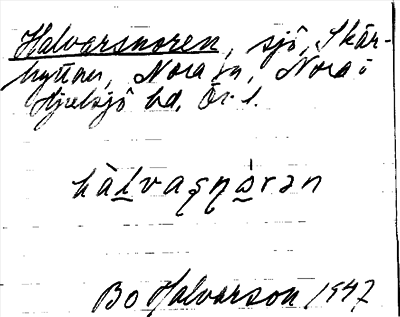 Halvarsnoren, sjö, Skär-
hyttner, Nora sn, Nora o
Hjulsjö hd, Ör. l.
hàlvaşņàrən
Bo Halvarson 1947